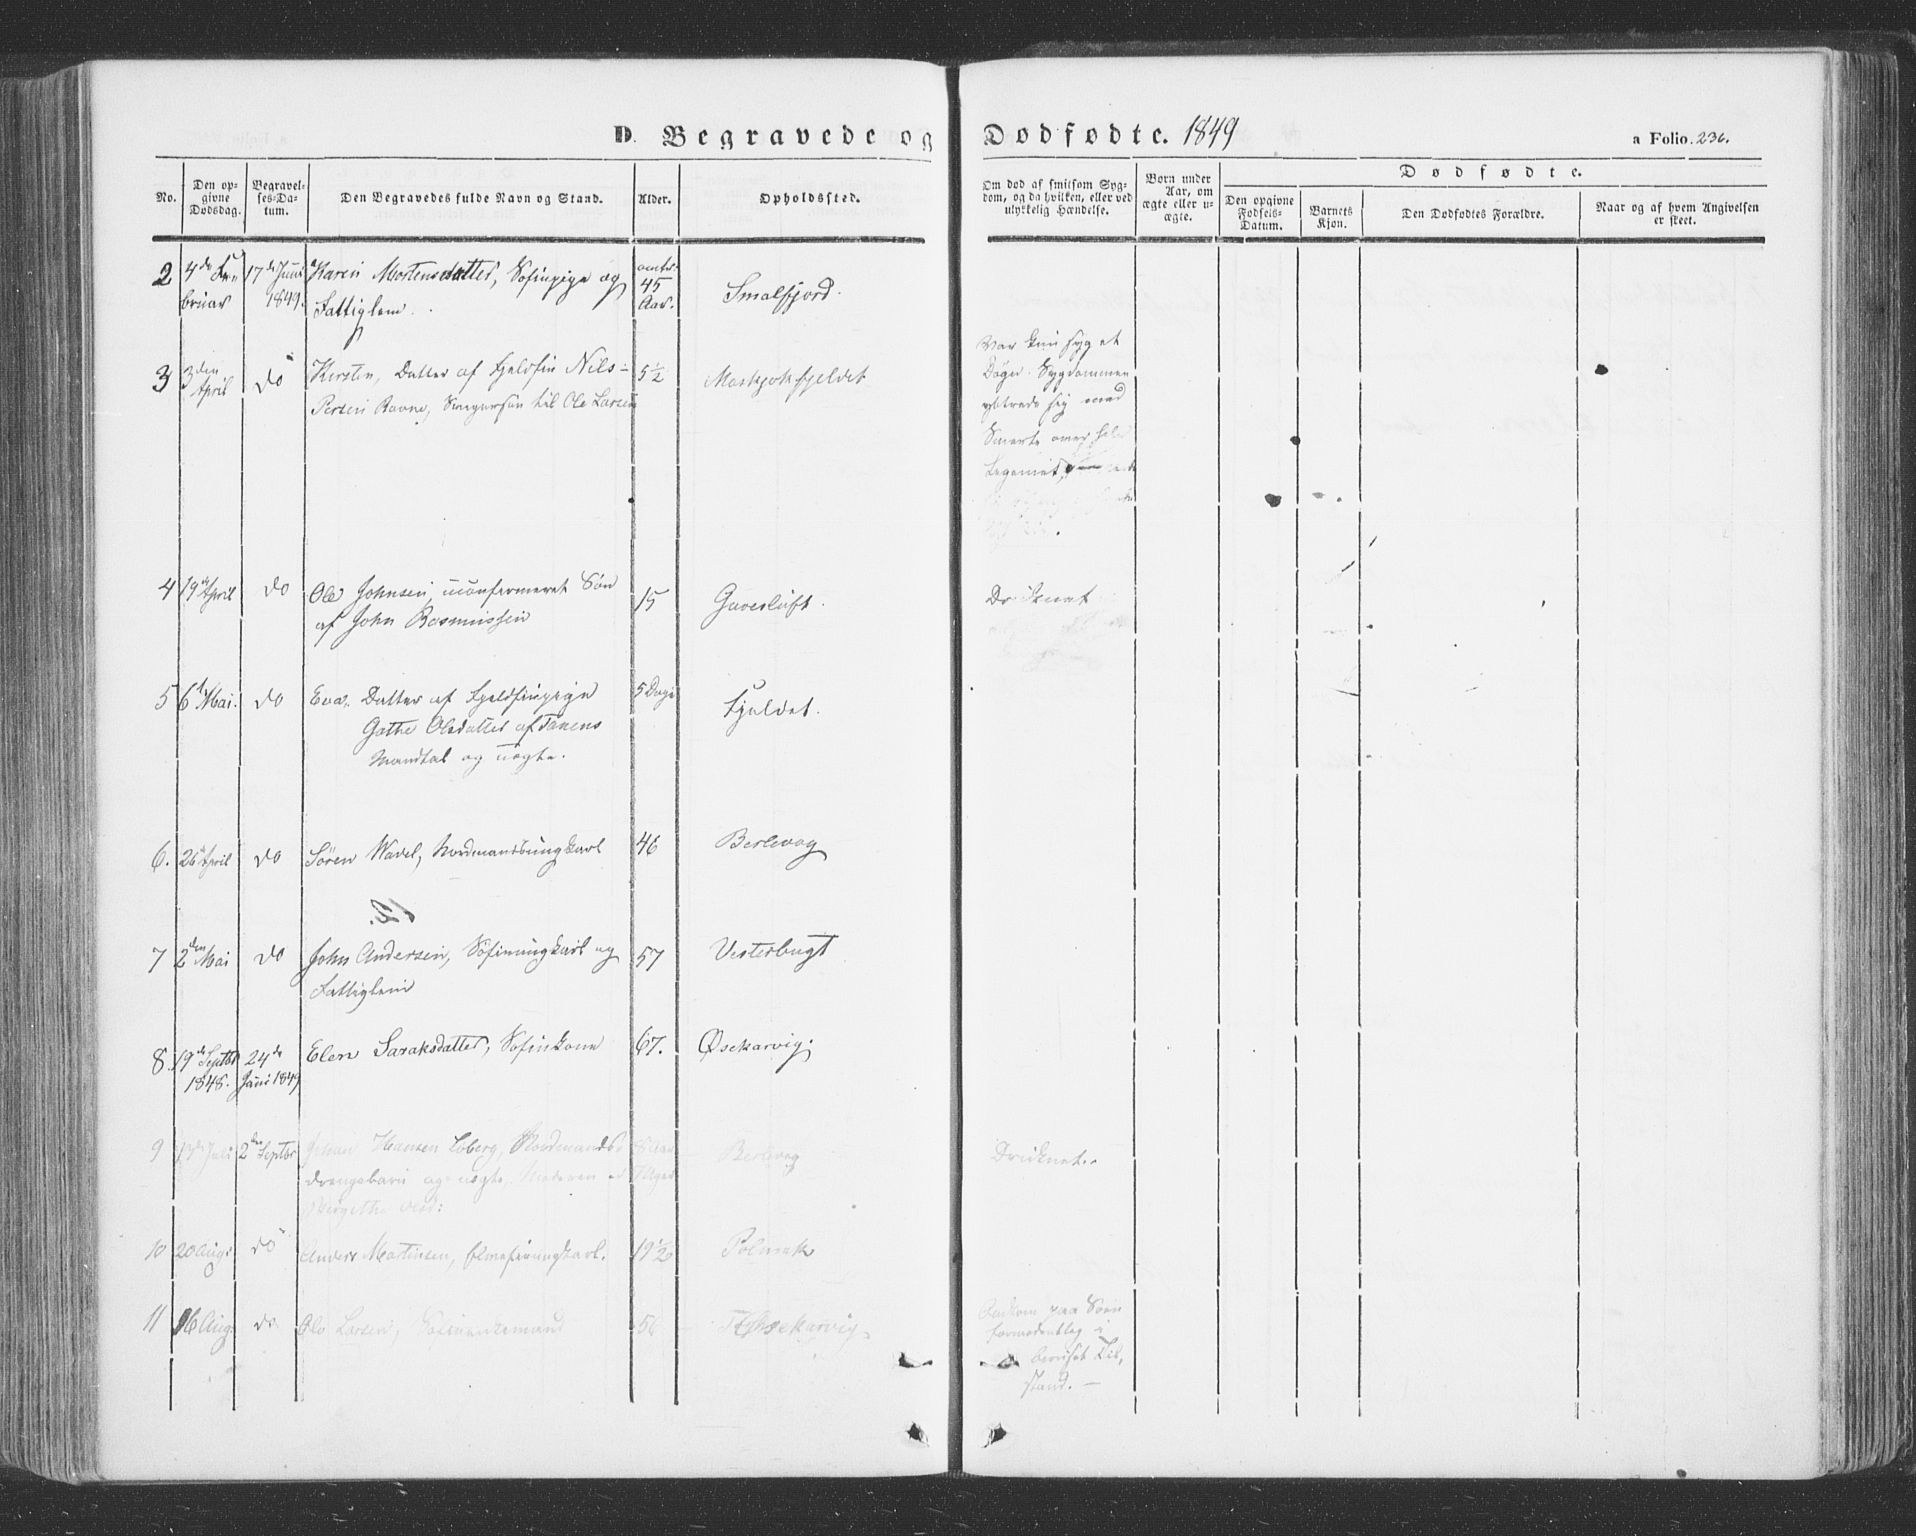 D. Begravede og Dodfødte. 1849
a Folio. 236.
No.
Den opgivne Dødsdag.
Begravelses-Datum.
Den Begravedes fulde Navn og Stand.
Alder.
Opholdssted.
Om død af smitsom Sygdom, og da hvilken, eller ved ulykkelig Hændelse.
Born under Aar, om ægte eller uægte.
Dodfødte.
Den opgivne Fødsels-Datum.
Barnets Kjon.
Den Dodfødtes Forældre.
Naar og af hvem Angivelsen er skeet.
2 4de Februar 17de Juni 1849. Karen Mortensdatter, Sofinpige og
Fattiglem.
omtr. 45 Aar.
Smalfjord.
3 3den April do Kirsten, Datter af Fjeldfin Nils
Persen Ravna, Svigersøn til Ole Larsen
5½
Maskjokfjeldet
Var kun syg et
Døgn. Sygdommen
yttrede sig med
Smerte over hele
Legemet,
4 19de April do Ole Johnsen, uconfermeret Søn
af John Rasmussen
15
Gavesluft.
Druknet
5 6te Mai. do Eva, Datter af Fjeldfinpige
Gathe Olsdatter af Tanens
Mandtal og uægte.
5 Dage
Fjeldet.
6. 26 April do Søren Wadel, Nordmandsungkarl
46
Berlevog
7 2den Mai do John Andersen, Søfinungkarl og
Fattiglem
57
Vesterbugt
8. 19de Septbr 1848. 24de Juni 1849 Elen Saraksdatter, Sofinkone
67.
Øsekarvig.
9 Juli 2den Septbr Johan Hansen Loberg, Nordmands
drengebarn og uægte, Moderen er
8 Aar
Berlevog
Druknet.
10 20 Aug. do Anders Mortensen, Elvefinungkarl.
19½
Polmak
11 16 Aug. do Ole Larsen, Sofinenkemand
56
Øsekarvig
Omkom paa Søen
formodentlig i
beruset Til-
stand. —